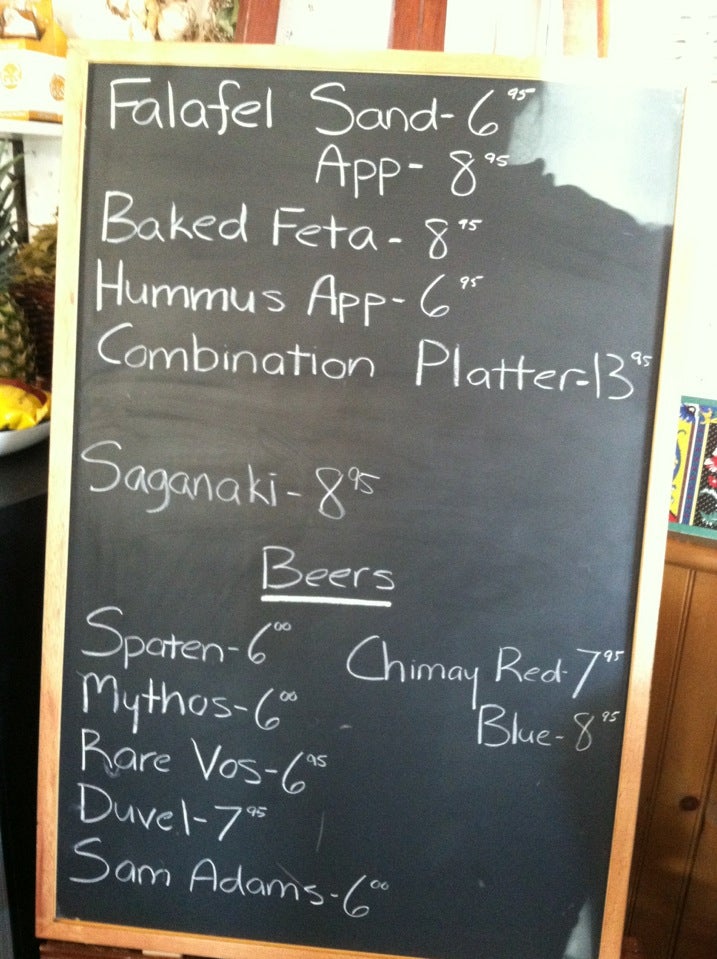 Falafel Sand- 6.95
App- 8.95
Baked Feta- 8.95
Hummus App- 6.95
Combination Platter- 13.95
Saganaki- 8.95
Beers
Spaten- 6.00
Mythos- 6.00
Rare Vos- 6.95
Duvel- 7.95
Sam Adams- 6.00
Chimay Red- 7.95
Blue- 8.95